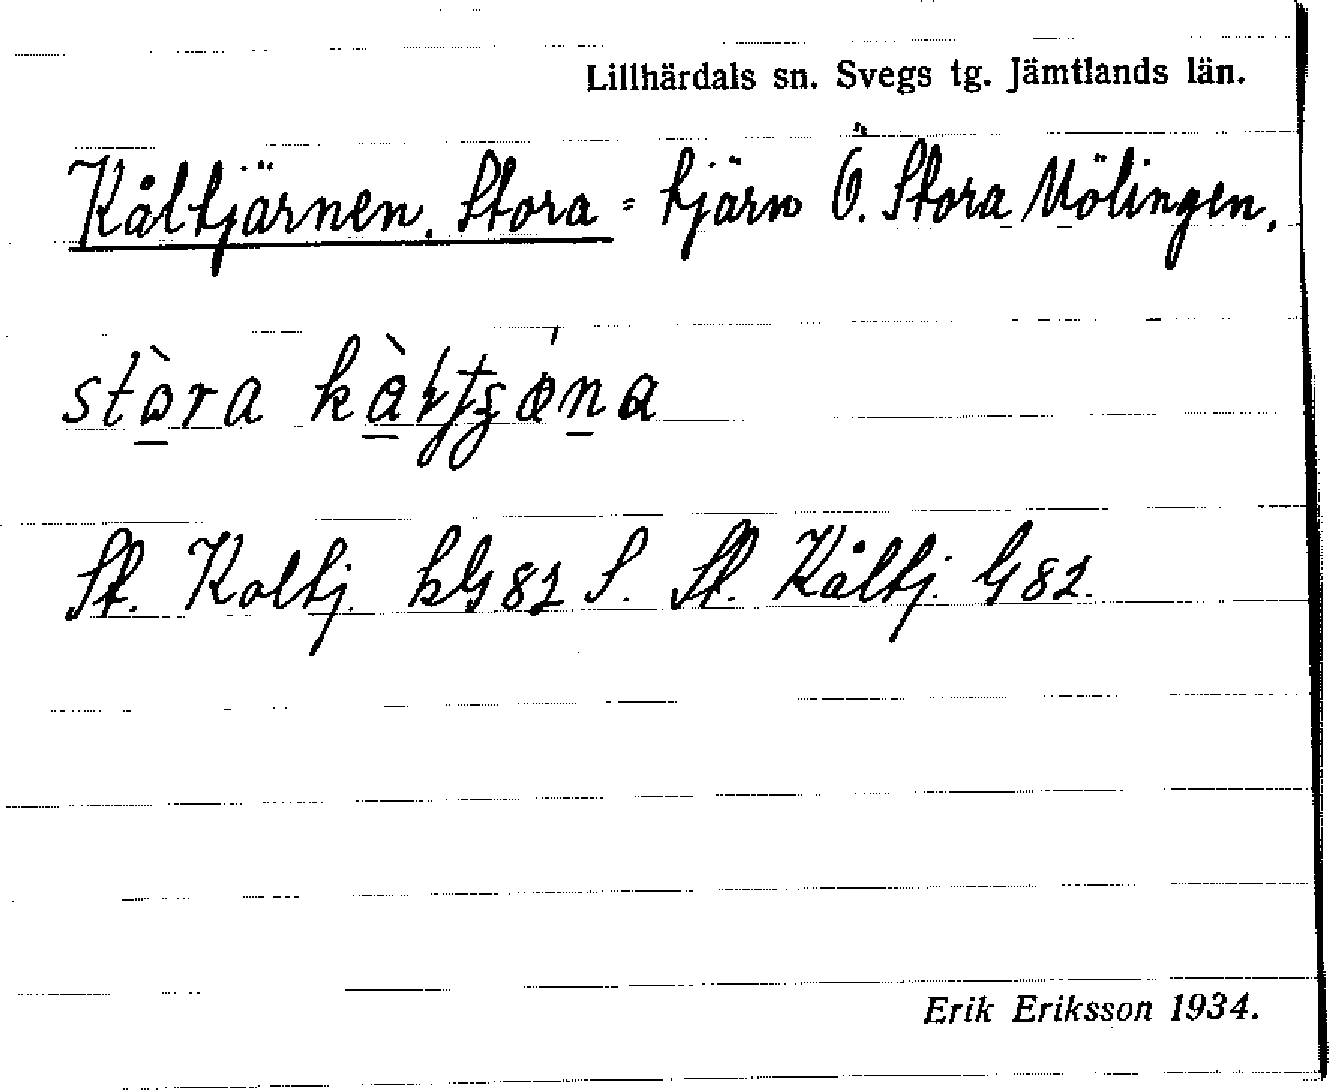 Lillhärdals sn. Svegs tg. Jämtlands län.
Kåltjärnen, Stora = tjärn Ö. Stora Mölingen.
stora
St. Koltj. kG82 S. St. Kåltj. G82.
Erik Eriksson 1934.